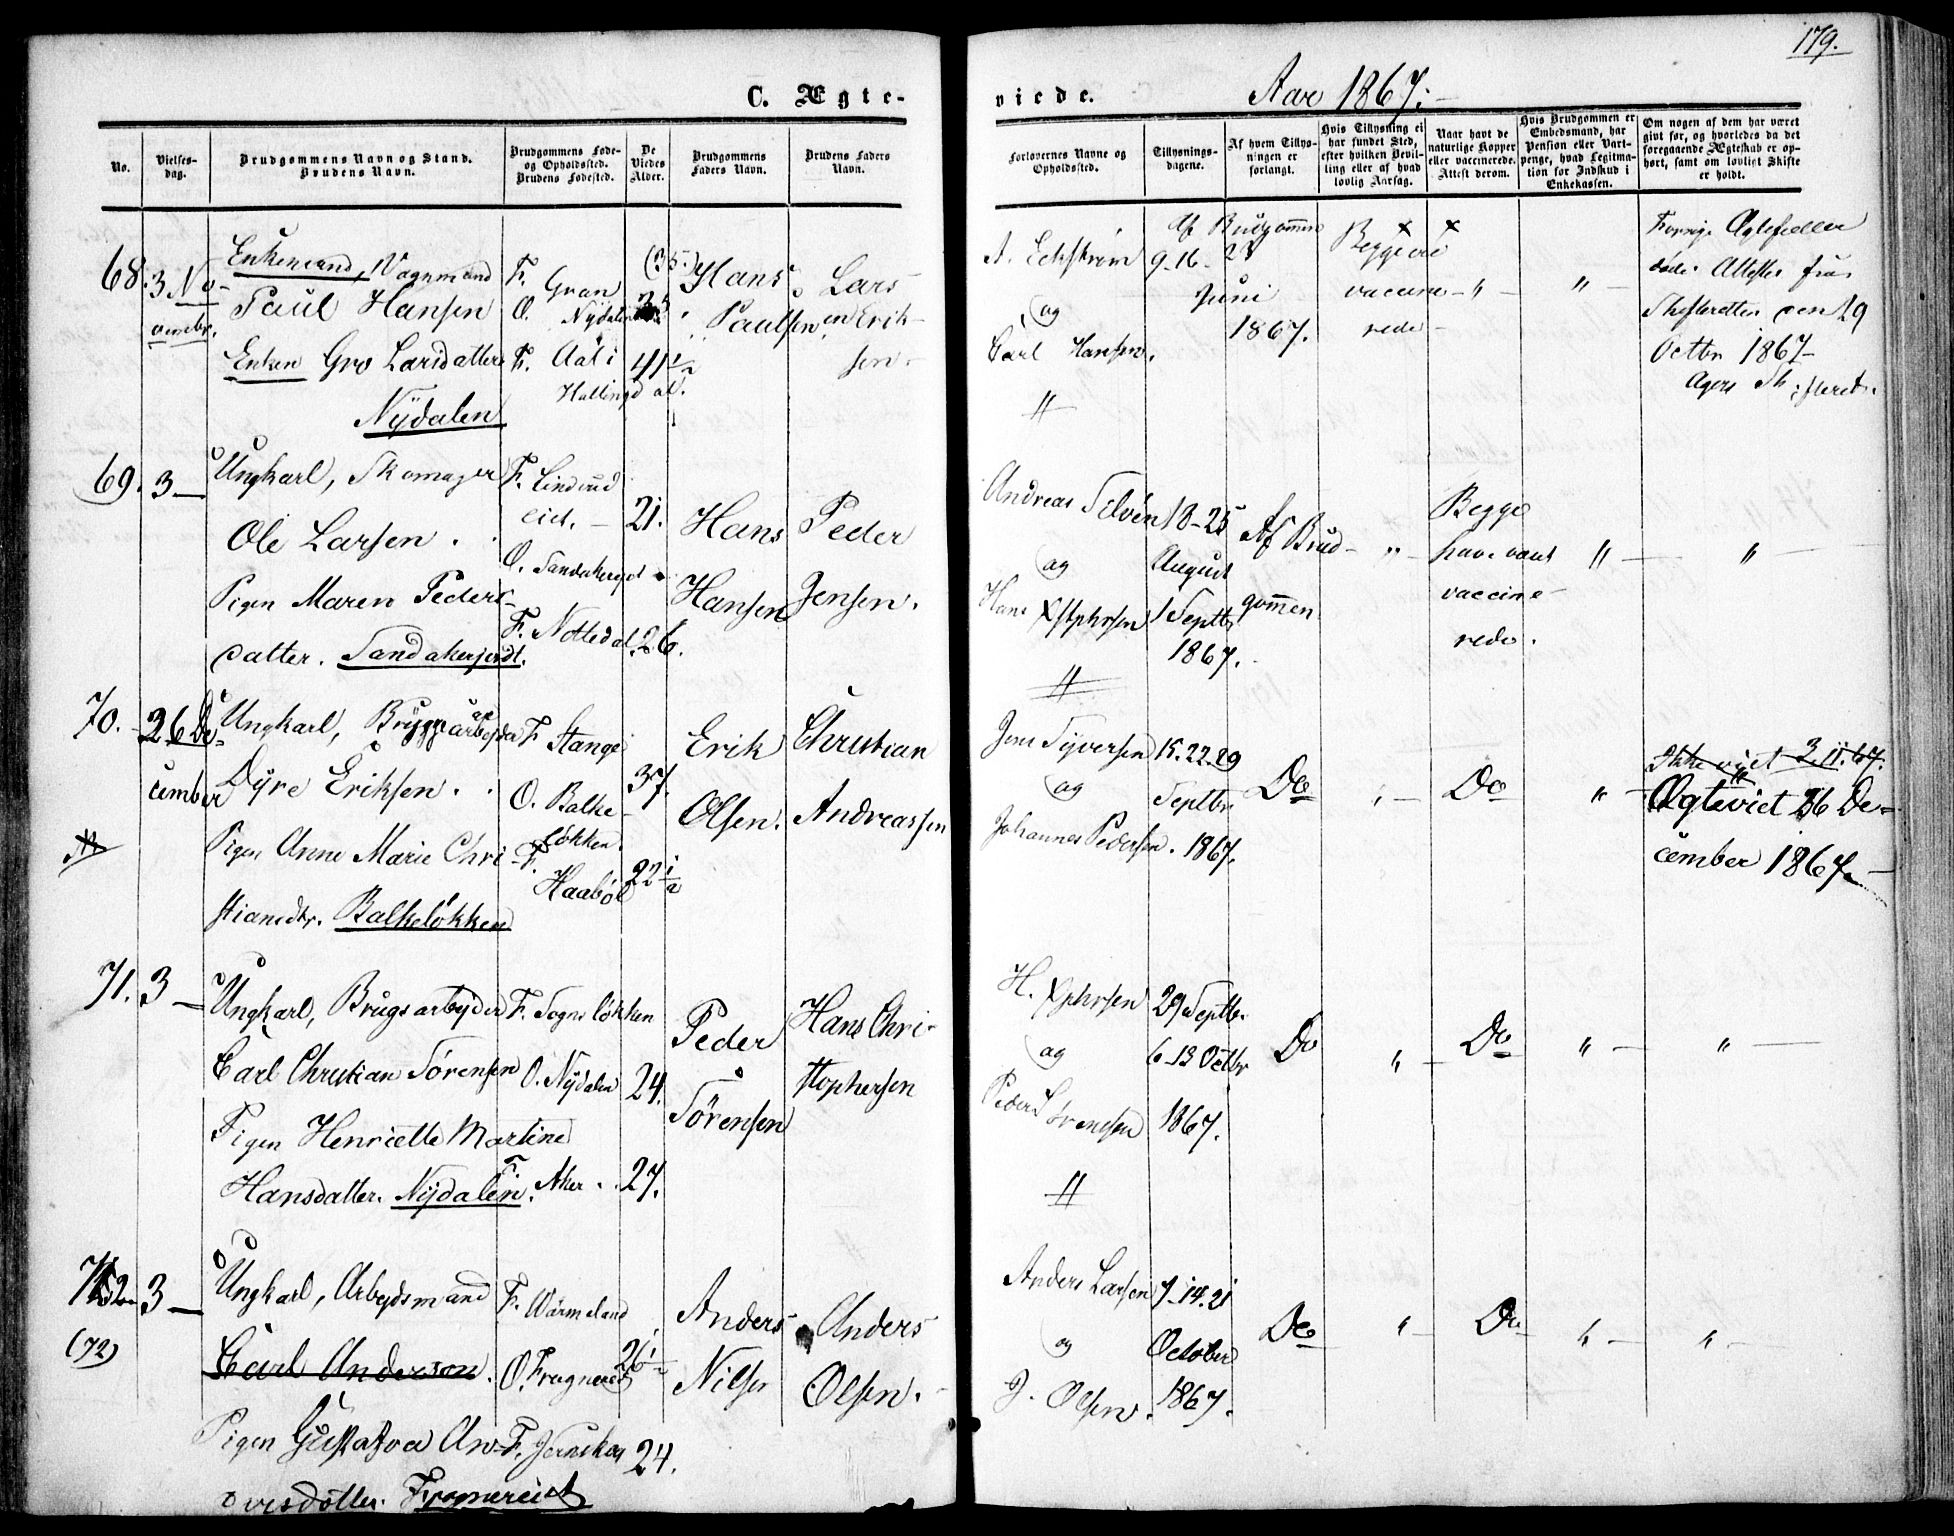 179.
C. Ægte-
viede.
Aar 1867.
No.
Vielses-
dag.
Brudgommens Navn og Stand.
Brudens Navn.
Brudgommens Føde-
og Opholdssted.
Brudens Fødested.
De
Viedes
Alder.
Brudgommens
Faders Navn.
Brudens Faders
Navn.
Forlovernes Navne og
Opholdssted.
Tillysnings-
dagene.
Af hvem Tillys-
ningen er
forlangt.
Hvis Tillysning ei
har fundet Sted,
efter hvilken Bevil-
ling eller af hvad
lovlig Aarsag.
Naar havt de
naturlige Kopper
eller vaccinerede.
Attest derom.
Hvis Brudgommen er
Embedsmand, har
Pension eller Vart-
penge, hvad Legitma-
tion for Indskud i
Enkekassen.
Om nogen af dem har været
givt før, og hvorledes da det
foregaaende Ægteskab er op-
hørt, samt om lovligt Skifte
er holdt.
68. 3 No-
vembr.
Enkemand, Vognmand
Paul Hansen
Enken Gro Larsdatter
Nÿdalen
F. Gran
O. Nÿdalen
F. Aal i
Hallingdal.
(35.)
41 1/2
Hans
Paulsen
Lars
Erik-
sen.
A. Eckstrøm
og
Carl Hansen.
9-16-23
Juni
1867.
Af Brudgommen
Begge ere
vaccine-
rede
Forrige Ægtefæller
døde. Attester fra
Skifteretten den 29
Octbr 1867
Agers Skifteret.
69. 3 —
Ungkarl, Skomager
Ole Larsen.
Pigen Maren Peders-
datter. Sandakerjordt.
F. Lindrud
eid.
O. Sandakerjdt
F. Nottedal.
21.
26.
Hans
Hansen
Peder
Jensen.
Andreas Silvén
og
Hans Xstphrsen
18-25
August
1 Septbr
1867.
Af Brud-
gommen
Begge
have vært
vaccine-
rede.
70. 26 De-
cember
Ungkarl, Bryggearbejder
Dÿre Eriksen.
Pigen Anne Marie Chri-
stiansdtr. Balkeløkken
F. Stange
O. Balke-
løkken.
F. Haabøl
37.
22 1/2
Erik
Olsen.
Christian
Andreassen
Jens Syversen
og
Johannes Pedersen.
15.22.29
Septbr
1867.
Do
Do
Ikke viet 3.11.67.
Ægteviet 26 De-
cember 1867.
71. 3 —
Ungkarl, Brugsarbejder
Carl Christian Sörensen
Pigen Henriette Martine
Hansdatter. Nÿdalen.
F. Sognsløkken
O. Nÿdalen
F. Aker
24.
27.
Peder
Sörensen
Hans Chri-
stophersen
H. Xphrsen
og
Peder Sörensen
29 Septbr.
6-13 Octbr
1867.
Do
Do
72 3 —
(72)
Ungkarl, Arbejdsmand
Carl Anderson.
Pigen Gustafva An-
dersdotter. Frognereiet
F. Wärmeland
O. Frognereiet
F. Jernskog
26 1/2
24.
Anders
Nilsen
Anders
Olsen.
Anders Larsen
og
J. Olsen.
7-14-21
October
1867.
Do
Do